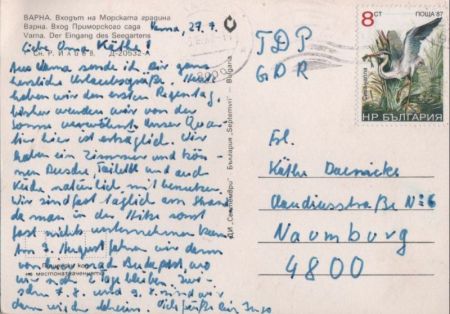 ВАРНА. Входът на Морската градина
Варна. Вход Приморского сада
Varna. Der Eingang des Seegartens
Ск. Р. Илиев. Д-20652-А
Varna, 27. 7.
Liebe Oma Käthe!
Aus Varna sende ich Dir ganz
herzliche Urlaubsgrüße. Heute
haben wir den ersten Regentag,
bisher wurden wir von der
Sonne verwöhnt. Unser Quar-
tier hier ist erträglich. Wir
haben ein Zimmer und kön-
nen Dusche, Toilette und auch
Küche natürlich mit benutzen.
Wir sind fast täglich am Strand,
da man in der Hitze sonst
fast nichts unternehmen kann.
Am 3. August fahren wir dann
nach Budapest, wo
wir noch 2 Tage bleiben.
7. 8. und 9. 8. sind wir
dann wieder daheim.
ДИ „Септември" България „Septemvri" – Bulgaria
Пощенски код
на местоназначението
8 СТ ПОЩА '87
НР БЪЛГАРИЯ
TDP
GDR
Frl.
Käthe
Claudiusstraße No: 6
Naumburg
4800